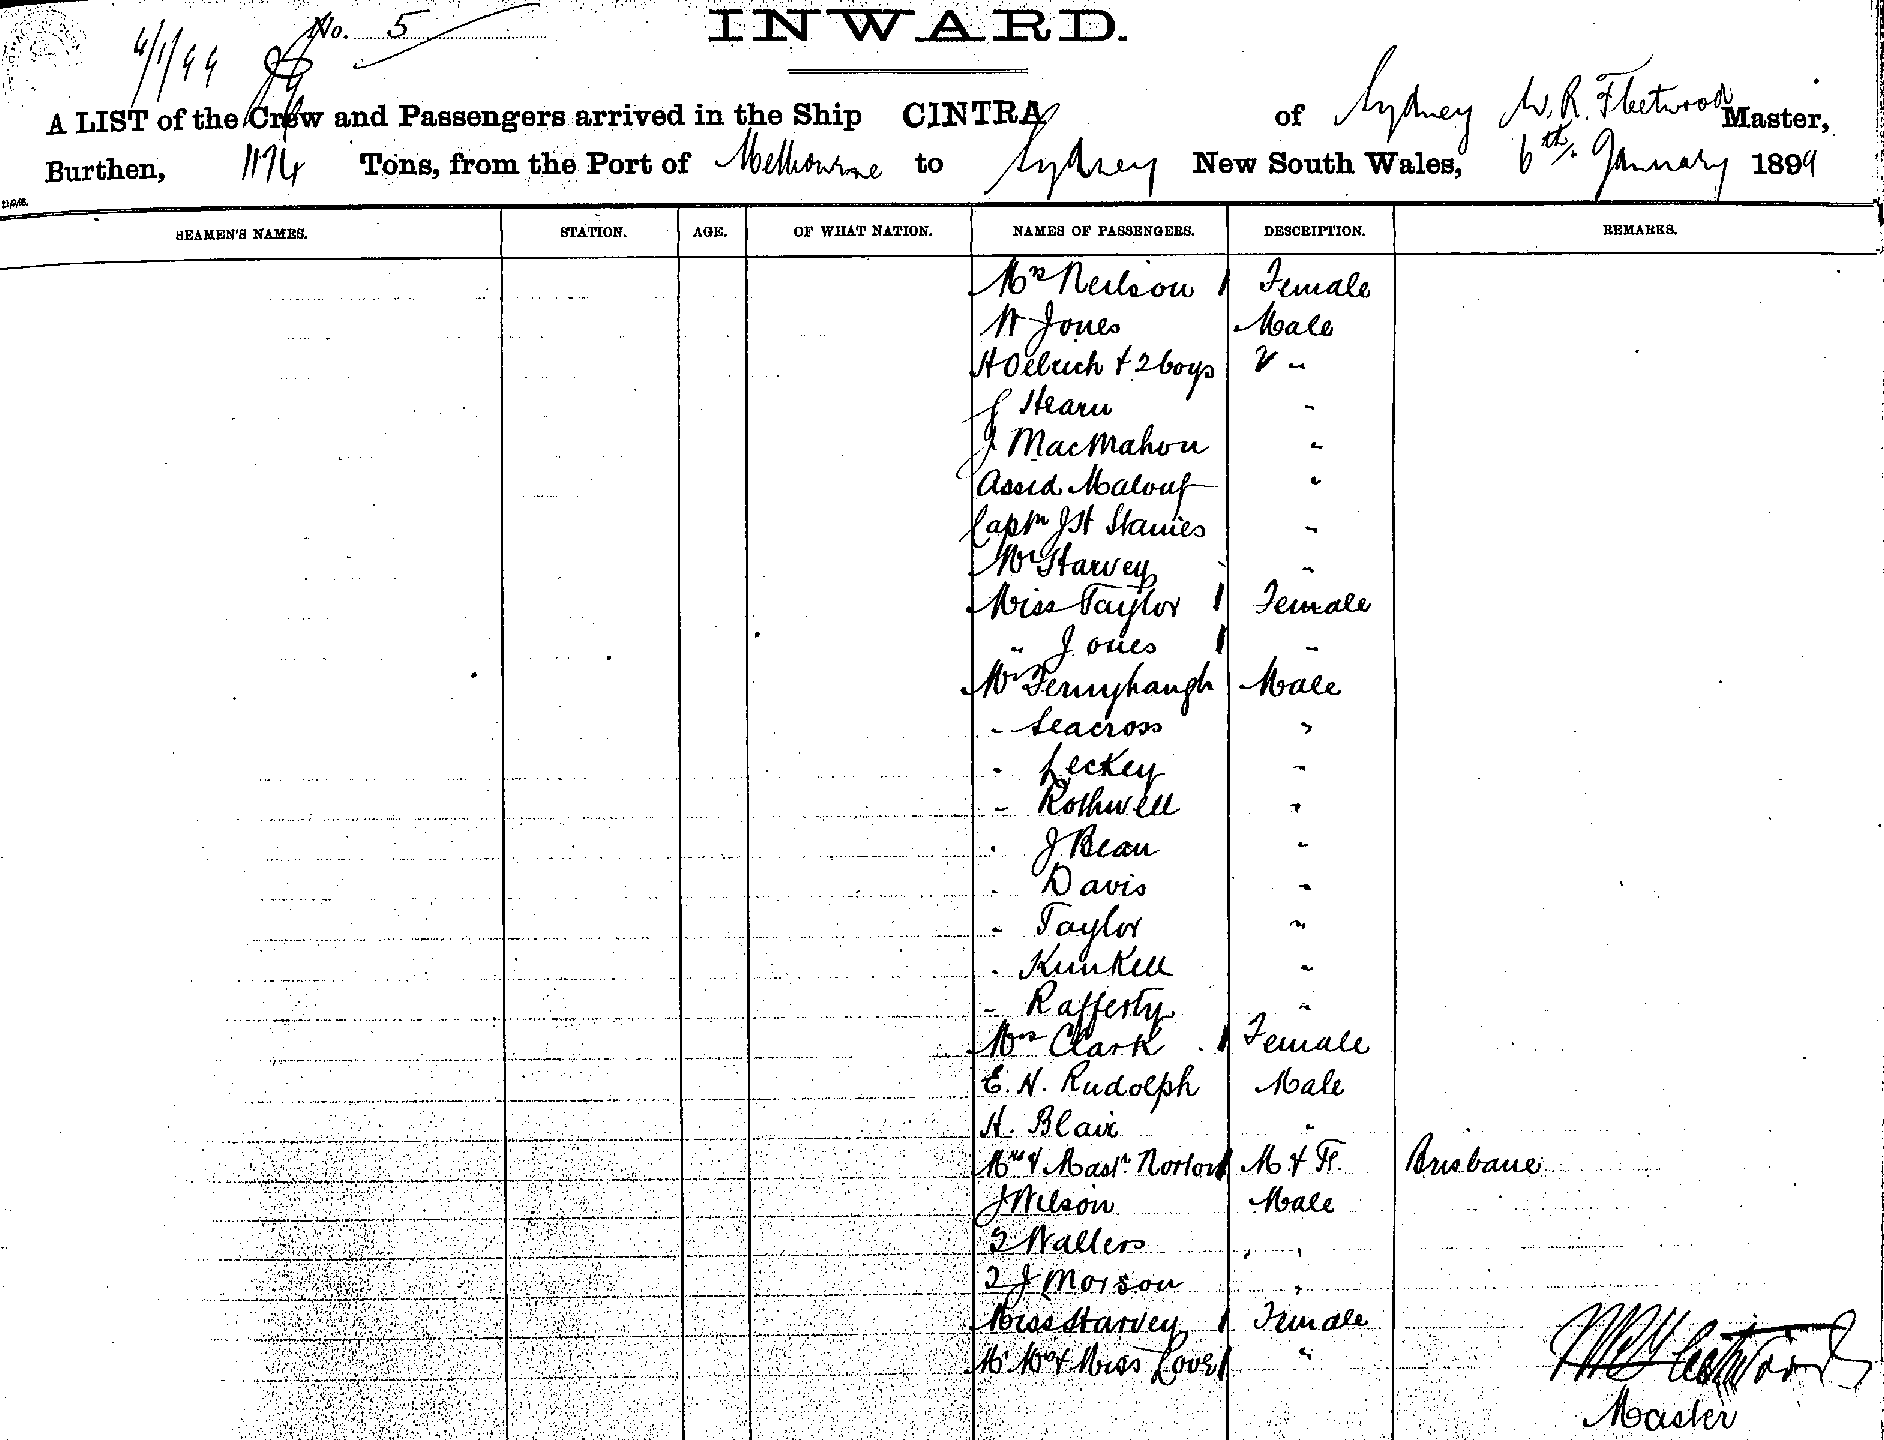 6/1/99 No. 5
INWARD.
A LIST of the Crew and Passengers arrived in the Ship CINTRA of Sydney W. R. Fleetwood Master,
Burthen, 1174 Tons, from the Port of Melbourne to Sydney New South Wales, 6th January 1899
SEAMEN'S NAMES. STATION. AGE. OF WHAT NATION. NAMES OF PASSENGERS. DESCRIPTION. REMARKS.
Mrs Neilson Female
W Jones Male
H Oelrich & 2 boys "
J Hearn "
J MacMahon "
Assid Malouf "
Captn "
Mr Harvey "
Miss Taylor Female
" Jones "
Mr Fernyhaugh Male
" Seacross "
" Leckey "
" Rothwell "
" J Bean "
" Davis "
" Taylor "
" Kunkell "
" Rafferty "
Mrs Clark Female
E. H. Rudolph Male
H. Blair "
Mrs & Mastr Norton M & F. Brisbane
J Wilson Male
Walters "
J Morson "
Miss Harvey Female
Mr Mrs & Miss Love "
W R Fleetwood
Master